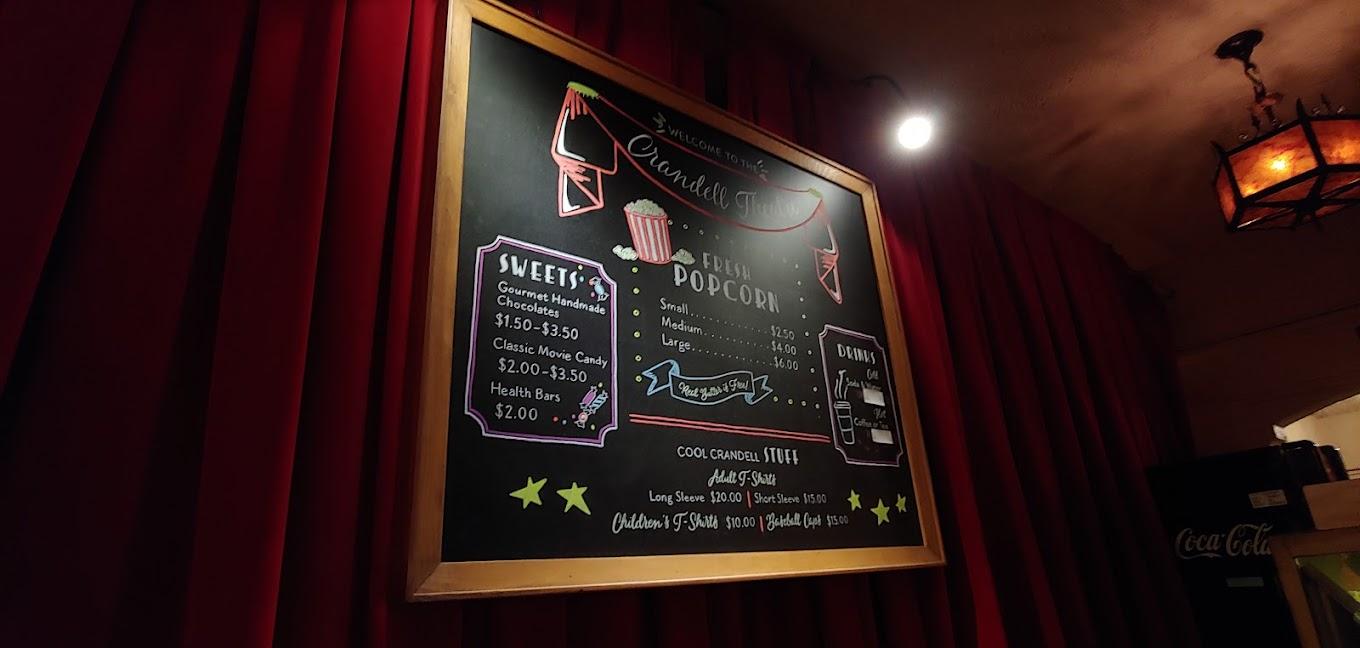 WELCOME TO THE
Crandell Theatre
SWEETS
Gourmet Handmade
Chocolates
$1.50-$3.50
Classic Movie Candy
$2.00-$3.50
Health Bars
$2.00
FRESH
POPCORN
Small.............$2.50
Medium.............$4.00
Large.............$6.00
Real Butter is Free!
DRINKS
Cold
Soda & Water
Hot
Coffee or Tea
COOL CRANDELL STUFF
Adult T-Shirts
Long Sleeve $20.00 | Short Sleeve $15.00
Children's T-Shirts $10.00 | Baseball Caps $15.00
Coca-Cola